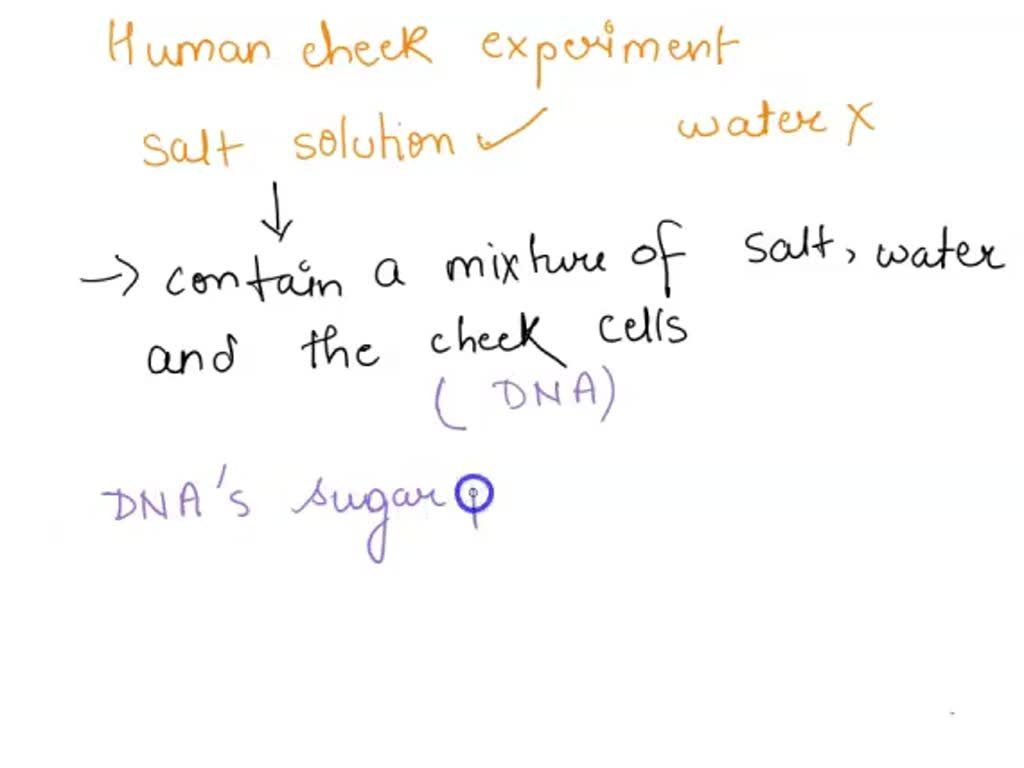 Human cheek experiment
salt solution ✓ water X
↓
→ contain a mixture of salt, water
and the cheek cells
( DNA)
DNA's sugar p